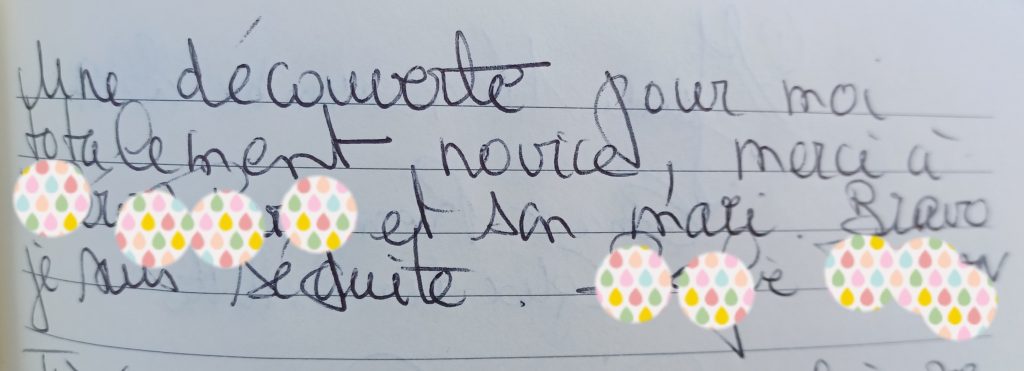 Une découverte pour moi
totalement novice, merci à
et son mari. Bravo
je suis séduite.